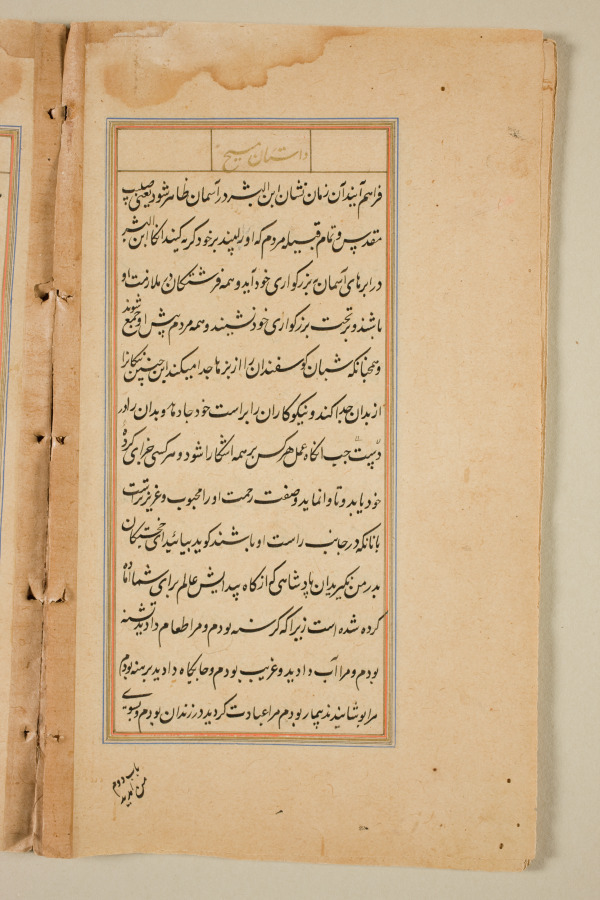 داستان مسیح
فراهم آیند آن زمان نشان ابن البشر در آسمان ظاهر شود یعنی صلیب
مقدس و تمام قبیله مردم که او را بینند بر خود گریه کنند انگاه ابن البشر
در ابرهای آسمان بزرگواری خود آید و همه فرشتگان در ملازمت او
باشند و بر تخت بزرگواری خود نشیند و همه مردم پیش او جمع شوند
و همچنانکه شبان گوسفندان را از بزها جدا میکند این چنین نیکان را
از بدان جدا کند و نیکوکاران را براست خود جا دهد و بدان را در
دست چپ انگاه عمل هر کس بر همه اشکارا شود و هر کسی جزای کرده
خود یابد و تا وانماید وصفت رحمت او را محبوب و عزیزتر است
بانانکه در جانب راست او باشند گوید بیائید ای خجستگان
پدر من بگیرید ان پادشاهی که از گاه پیدایش عالم برای شما آماده
کرده شده است زیرا که گرسنه بودم و مرا طعام دادید تشنه
بودم و مرا آب دادید و غریب بودم و جایگاه دادید برهنه بودم
مرا پوشانیدند بیمار بودم مرا عیادت کردید در زندان بودم و بسوی
باب دوم